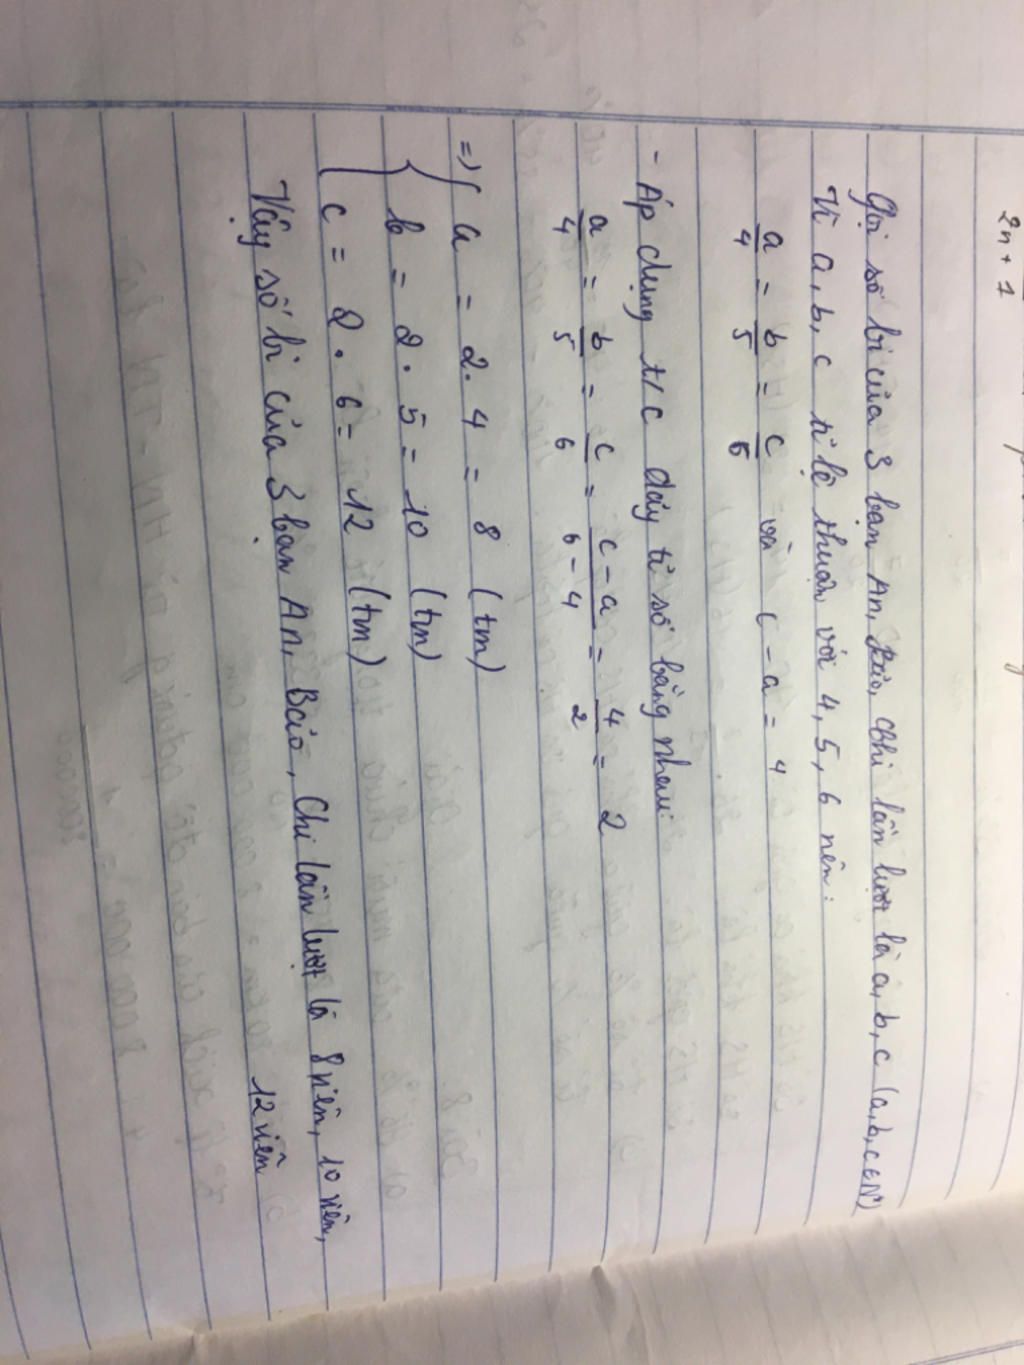 2n + 1
Gọi số bi của 3 bạn An, Bảo, Chi lần lượt là a, b, c (a, b, c ∈ N*)
Vì a, b, c tỉ lệ thuận với 4, 5, 6 nên:
a/4 = b/5 = c/6 và c - a = 4
- Áp dụng t/c dãy tỉ số bằng nhau:
a/4 = b/5 = c/6 = c - a/6 - 4 = 4/2 = 2
=> { a = 2. 4 = 8 (tm)
b = 2. 5 = 10 (tm)
c = 2. 6 = 12 (tm)
Vậy số bi của 3 bạn An, Bảo, Chi lần lượt là 8 viên, 10 viên,
12 viên